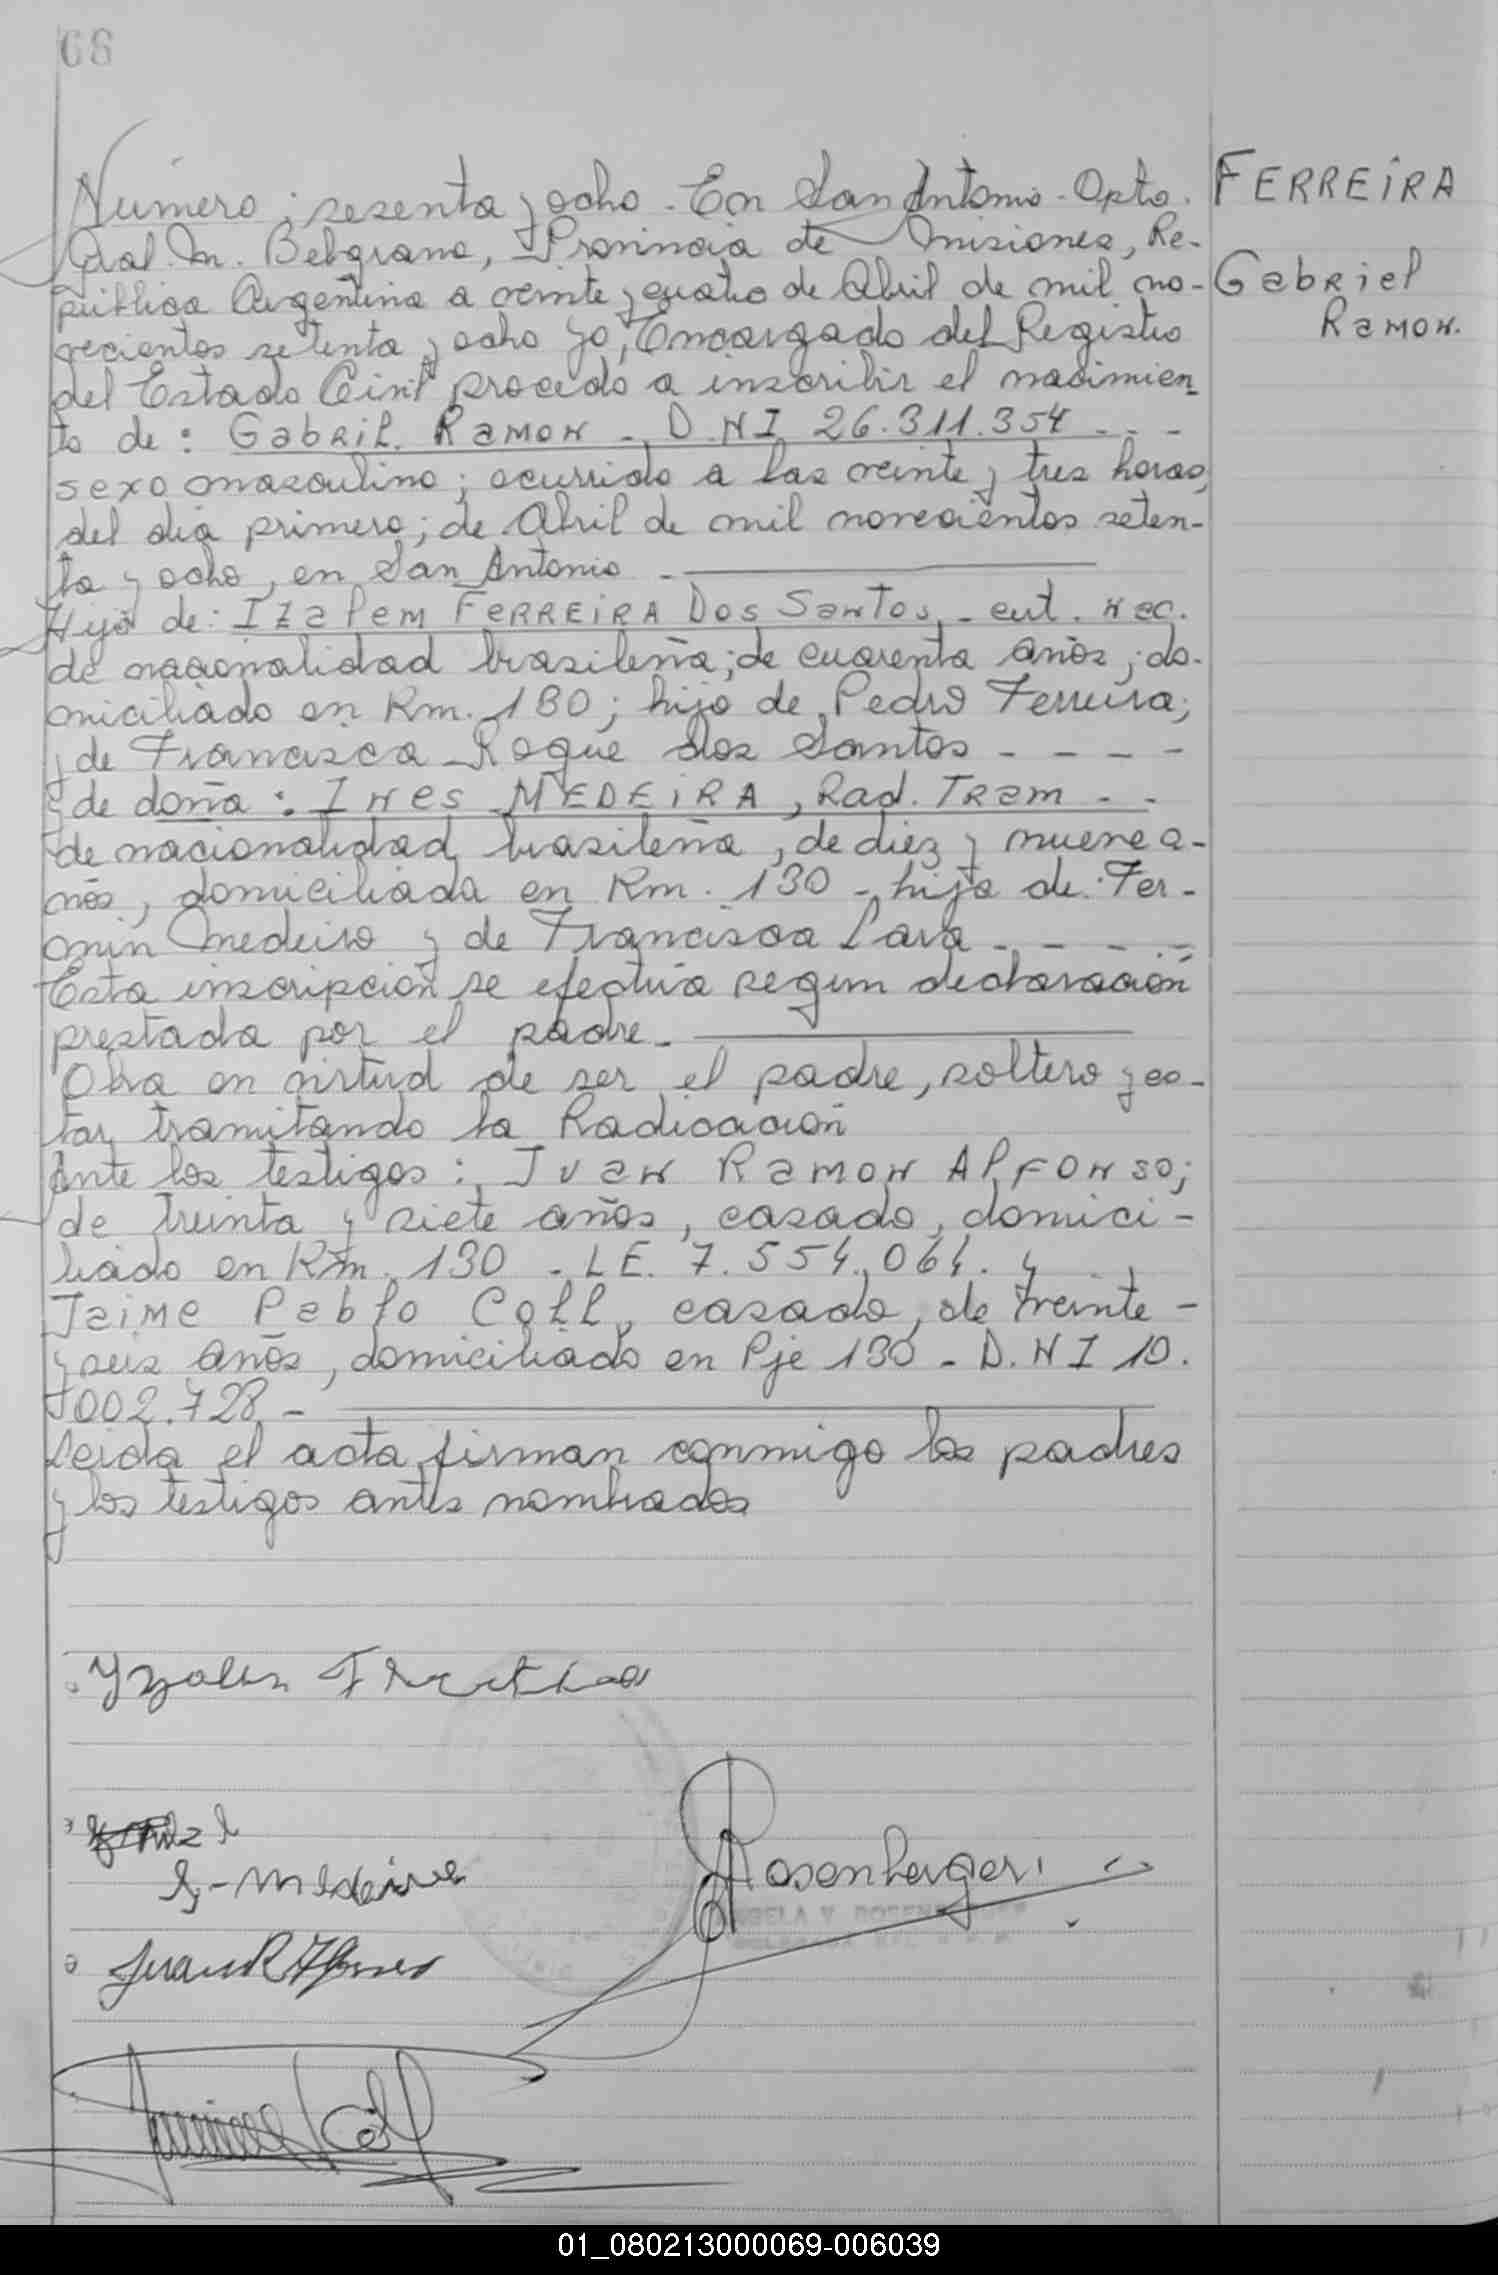 68
Número; sesenta y ocho. En San Antonio - Dpto.
Gral. M. Belgrano, Provincia de Misiones, Re-
pública Argentina a veinte y cuatro de Abril de mil no-
vecientos setenta y ocho yo, Encargado del Registro
del Estado Civil procedo a inscribir el nacimien-
to de: Gabril. Ramon - D.N.I 26.311.354 - - -
sexo masculino; ocurrido a las veinte y tres horas,
del día primero; de Abril de mil novecientos seten-
ta y ocho, en San Antonio -
Hijo de: Izalem FERREIRA Dos Santos - cut. nac.
de nacionalidad brasileña; de cuarenta años; do-
miciliado en Km. 130; hijo de Pedro Ferreira;
y de Francisca Roque dos Santos - - - -
y de doña: Ines MEDEIRA, Rad. Tram - -
de nacionalidad brasileña, de diez y nueve a-
ños, domiciliada en Km. 130 - hija de: Fer-
min Medeiro y de Francisca Lara - - - -
Esta inscripción se efectúa segun declaración
prestada por el padre -
Obra en virtud de ser el padre, soltero y es-
tar tramitando la Radicación
Ante los testigos: Juan Ramon Alfonso;
de treinta y siete años, casado, domici-
liado en Km. 130 - LE. 7.554.064. y
Jaime Pablo Coll, casado, de treinte -
y seis años, domiciliado en Pje 130 - D.N I 10.
002.728 -
Leida el acta firman conmigo los padres
y los testigos antes nombrados
FERREIRA
Gabriel
Ramon.
Yzalen Ferreira
Medeira
Rosenberger
Juan R Alfonso
Jaime Coll
01_080213000069-006039